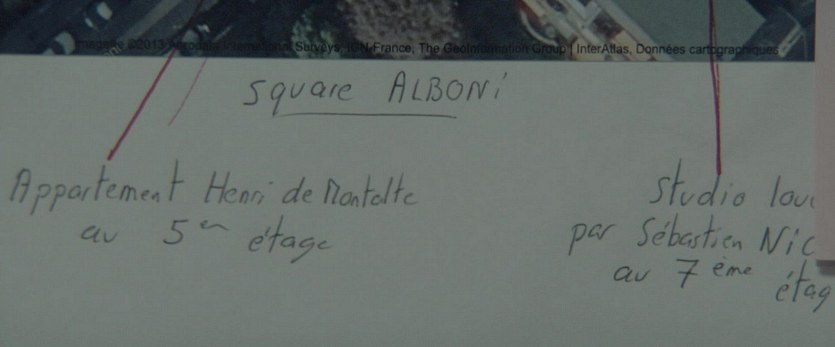 Images ©2013 Aerodata International Surveys, IGN-France, The GeoInformation Group | InterAtlas, Données cartographiques
Square ALBONi
Appartement Henri de Montalte
au 5em étage
Studio loué
par Sébastien Nic
au 7ème
étag